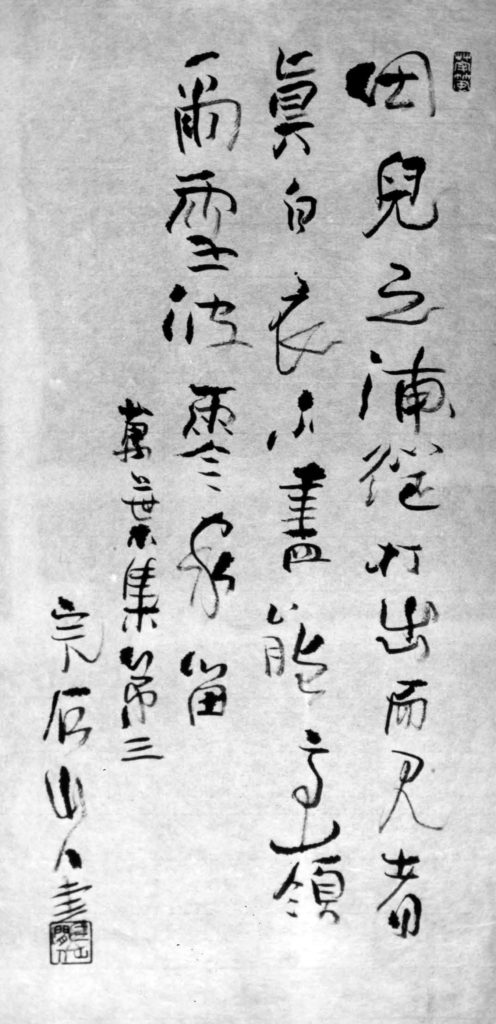 田兒之浦從打出而見者
真白衣不盡能高嶺
爾雪波零家留
萬葉集第三
山人書